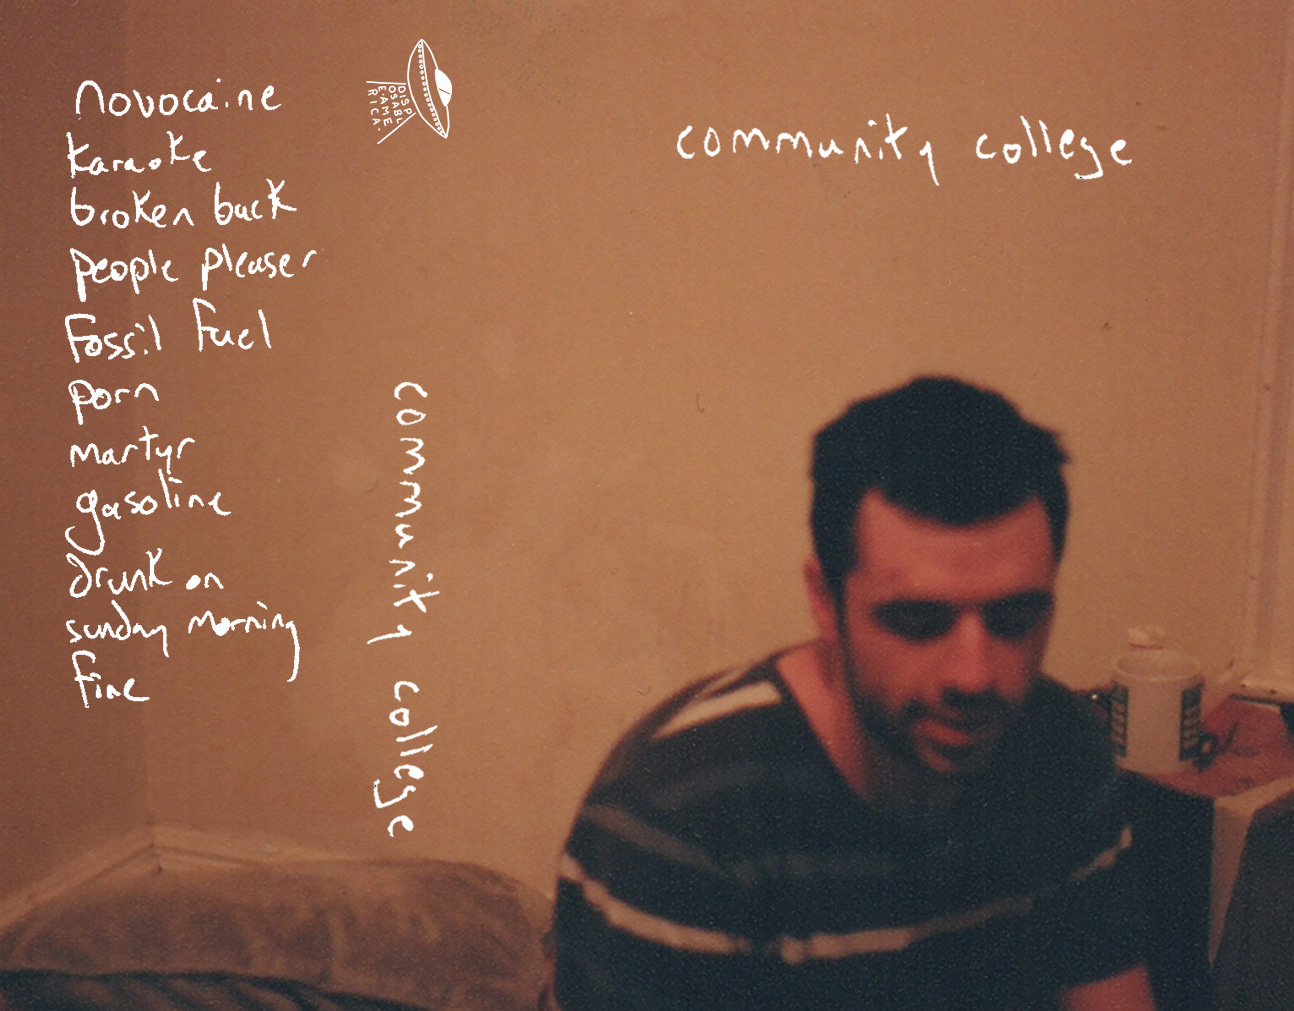 novocaine
karaoke
broken back
people pleaser
fossil fuel
porn
martyr
gasoline
drunk on
sunday morning
fine
DISP
OSABL
E AME
RICA.
community college
community college